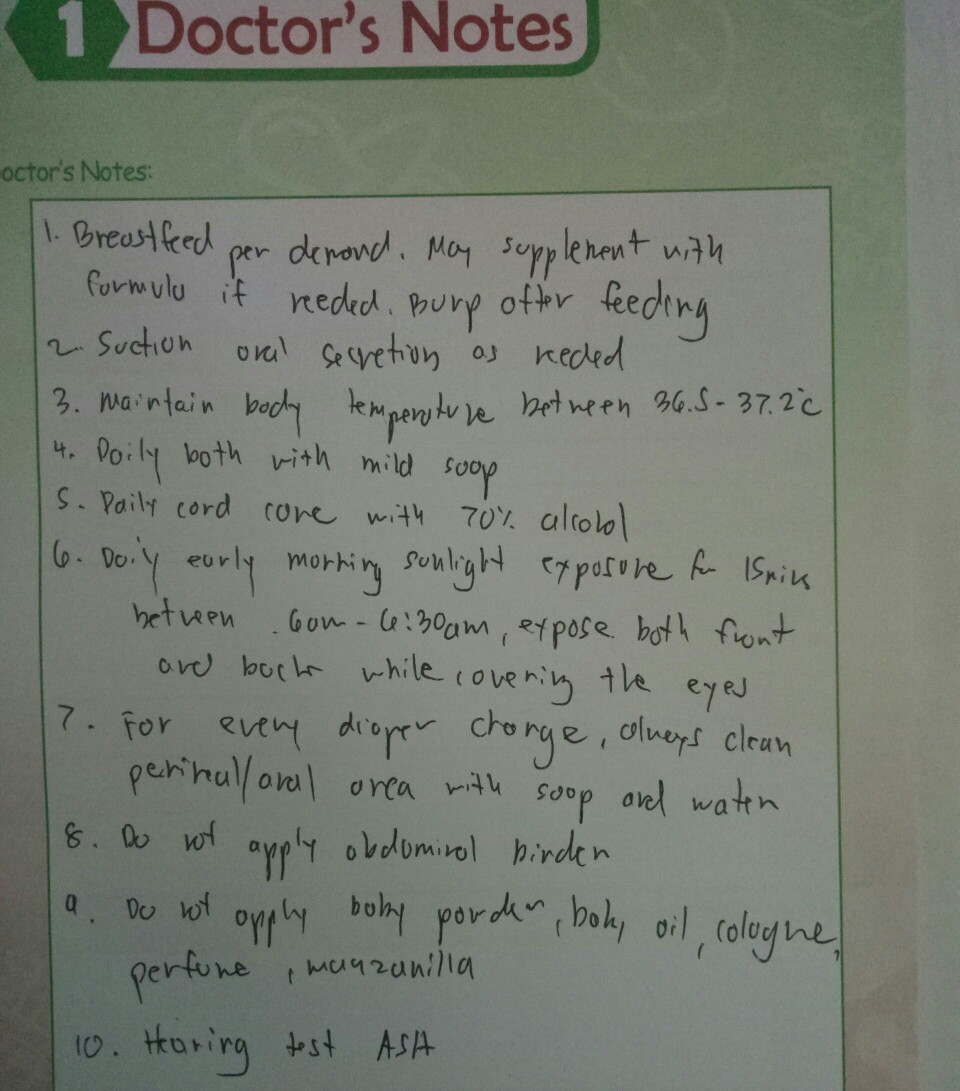 1 Doctor's Notes
octor's Notes:
1. Breastfeed per demand. May supplement with
formula if needed. Burp after feeding
2. Suction oral secretion as needed
3. Maintain body temperature between 36.5 - 37.2°c
4. Daily bath with mild soap
5. Daily cord care with 70% alcohol
6. Daily early morning sunlight exposure for 15mins
between 6am - 6:30am, expose both front
and back while covering the eyes
7. For every diaper change, always clean
perineal/anal area with soap and water
8. Do not apply abdominal binder
9. Do not apply baby powder, baby oil, cologne,
perfume, manzanilla
10. Hearing test ASA